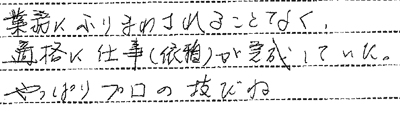 業務にふりまわされることなく、
適格に仕事(依頼)が完成していた。
やっぱりプロの技びね